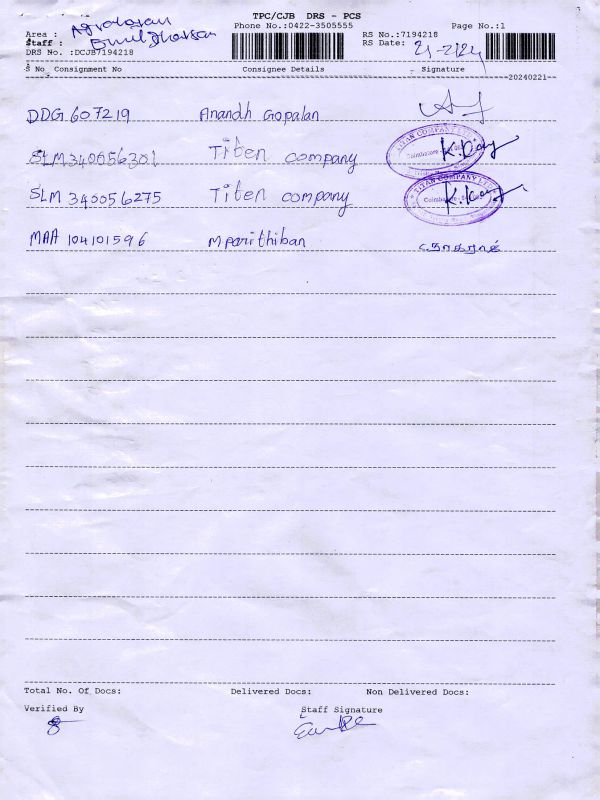 TPC/CJB DRS - PCS
Phone No.:0422-3505555 Page No.:1
Area : RS No.:7194218
Staff : RS Date: 21-2/24
DRS No. :DCJB7194218
S No Consignment No Consignee Details Signature
20240221
DDG 607219 Anandh Gopalan
SLM 340056301 Titen company K.
SLM 340056275 Titen company K.
MAA 104101596 M parithiban
TITAN COMPANY LTD
Coimbatore
TITAN COMPANY LTD
Total No. Of Docs: Delivered Docs: Non Delivered Docs:
Verified By Staff Signature